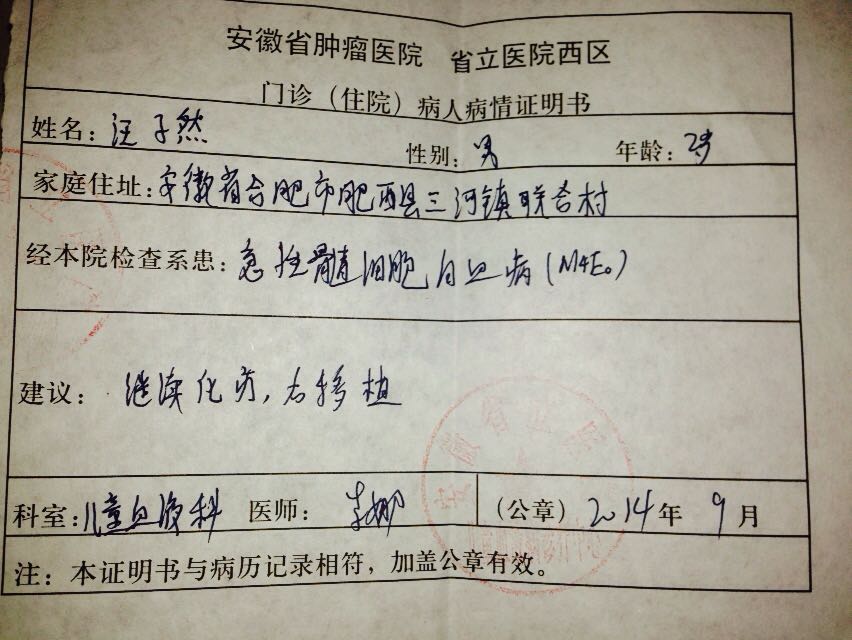 安徽省肿瘤医院 省立医院西区
门诊（住院）病人病情证明书
姓名：汪子然 性别：男 年龄：2岁
家庭住址：安徽省合肥市肥西县三河镇联合村
经本院检查系患：急性髓细胞白血病（M4Eo）
建议：继续化疗，右移植
科室：儿童血液科 医师：李娜 （公章）2014年 9月
注：本证明书与病历记录相符，加盖公章有效。